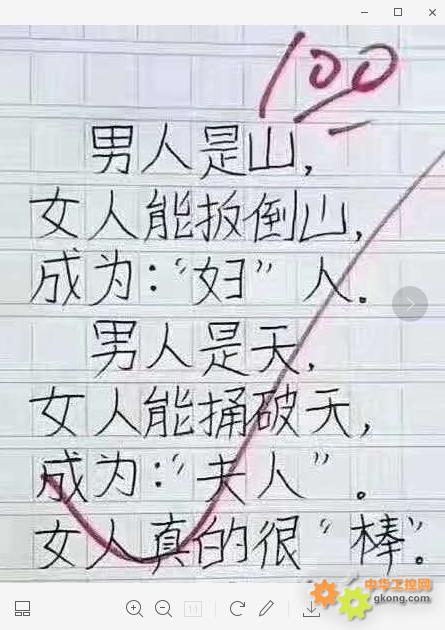 100
男人是山，
女人能扳倒山，
成为："妇"人。
男人是天，
女人能捅破天，
成为："夫人"。
女人真的很"棒"。
中华工控网
gkong.com
1:1